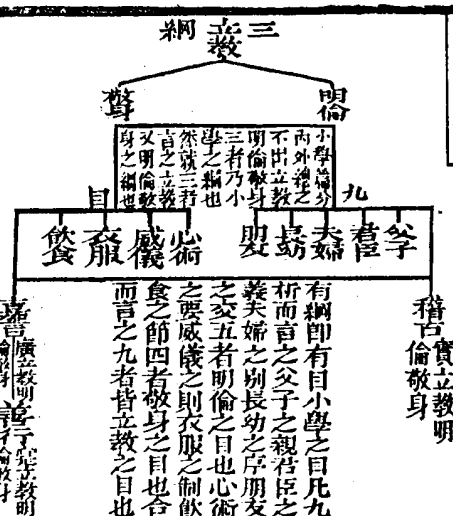 三立教綱
明倫
敬身
小學篇分
內外總之
不出立教
明倫敬身
三者乃小
學之綱也
然就三者
言之立教
又明倫敬
身之綱也
九目
父子
君臣
夫婦
長幼
朋友
心術
威儀
衣服
飲食
有綱卽有目小學之目凡九
析而言之父子之親君臣之
義夫婦之別長幼之序朋友
之交五者明倫之目也心術
之要威儀之則衣服之制飲
食之節四者敬身之目也合
而言之九者皆立教之目也
稽古實立教明
倫敬身
善行實立教明
倫敬身
嘉言廣立教明
倫敬身